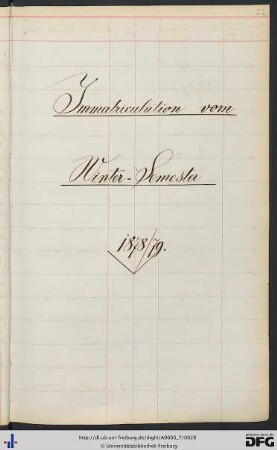 Immatriculation vom
Winter-Semester
1878/79.
http://dl.ub.uni-freiburg.de/diglit/A0066_7/0028
© Universitätsbibliothek Freiburg
DFG